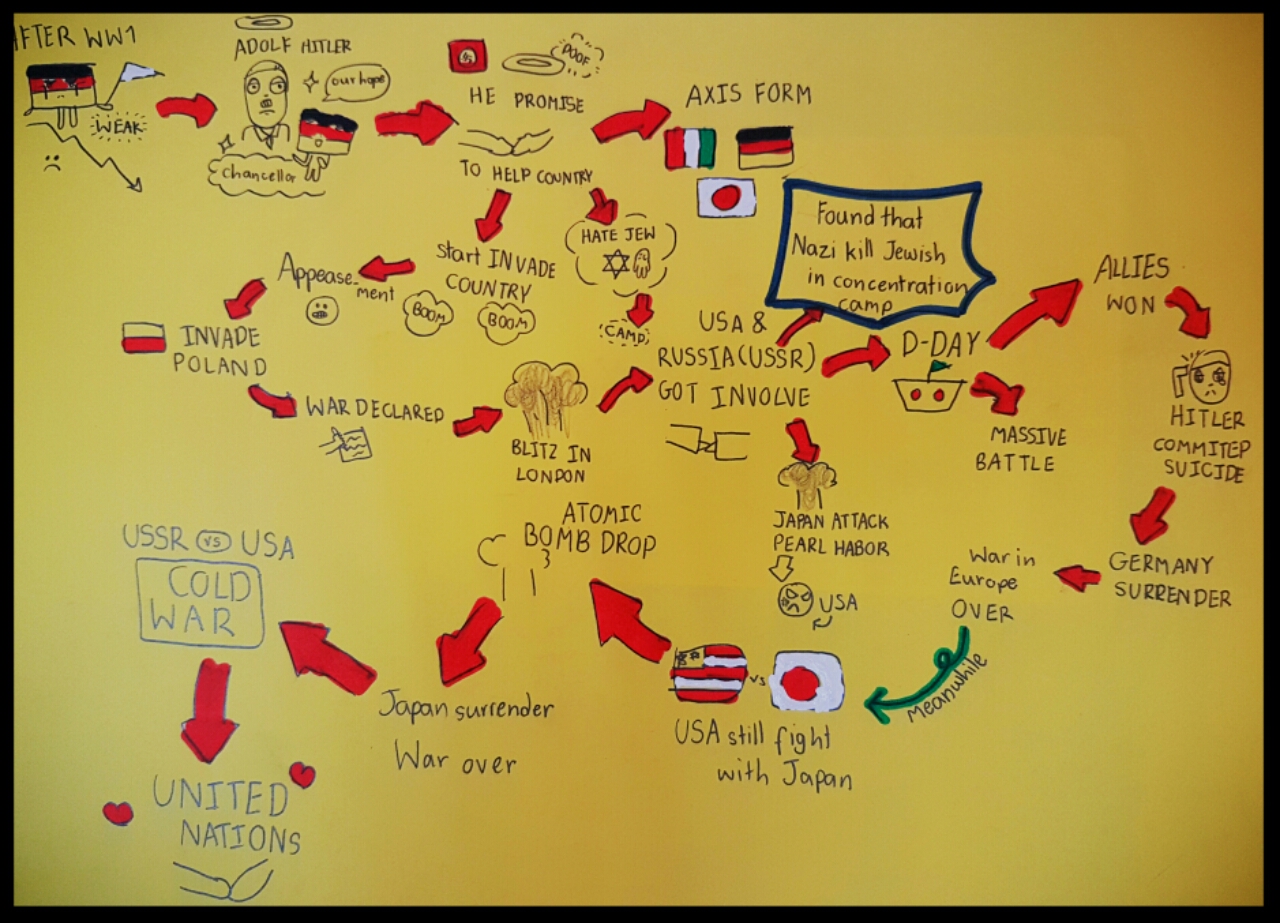 AFTER WW1
WEAK
ADOLF HITLER
our hope
Chancellor
POOF
HE PROMISE
TO HELP COUNTRY
AXIS FORM
HATE JEW
CAMP
Start INVADE
COUNTRY
BOOM
BOOM
Appease-
ment
INVADE
POLAND
WAR DECLARED
BLITZ IN
LONDON
USA &
RUSSIA (USSR)
GOT INVOLVE
Found that
Nazi kill Jewish
in concentration
camp
D-DAY
MASSIVE
BATTLE
ALLIES
WON
HITLER
COMMITED
SUICIDE
GERMANY
SURRENDER
War in
Europe
OVER
Meanwhile
JAPAN ATTACK
PEARL HABOR
USA
vs
USA still fight
with Japan
ATOMIC
BOMB DROP
Japan surrender
War over
USSR VS USA
COLD
WAR
UNITED
NATIONS